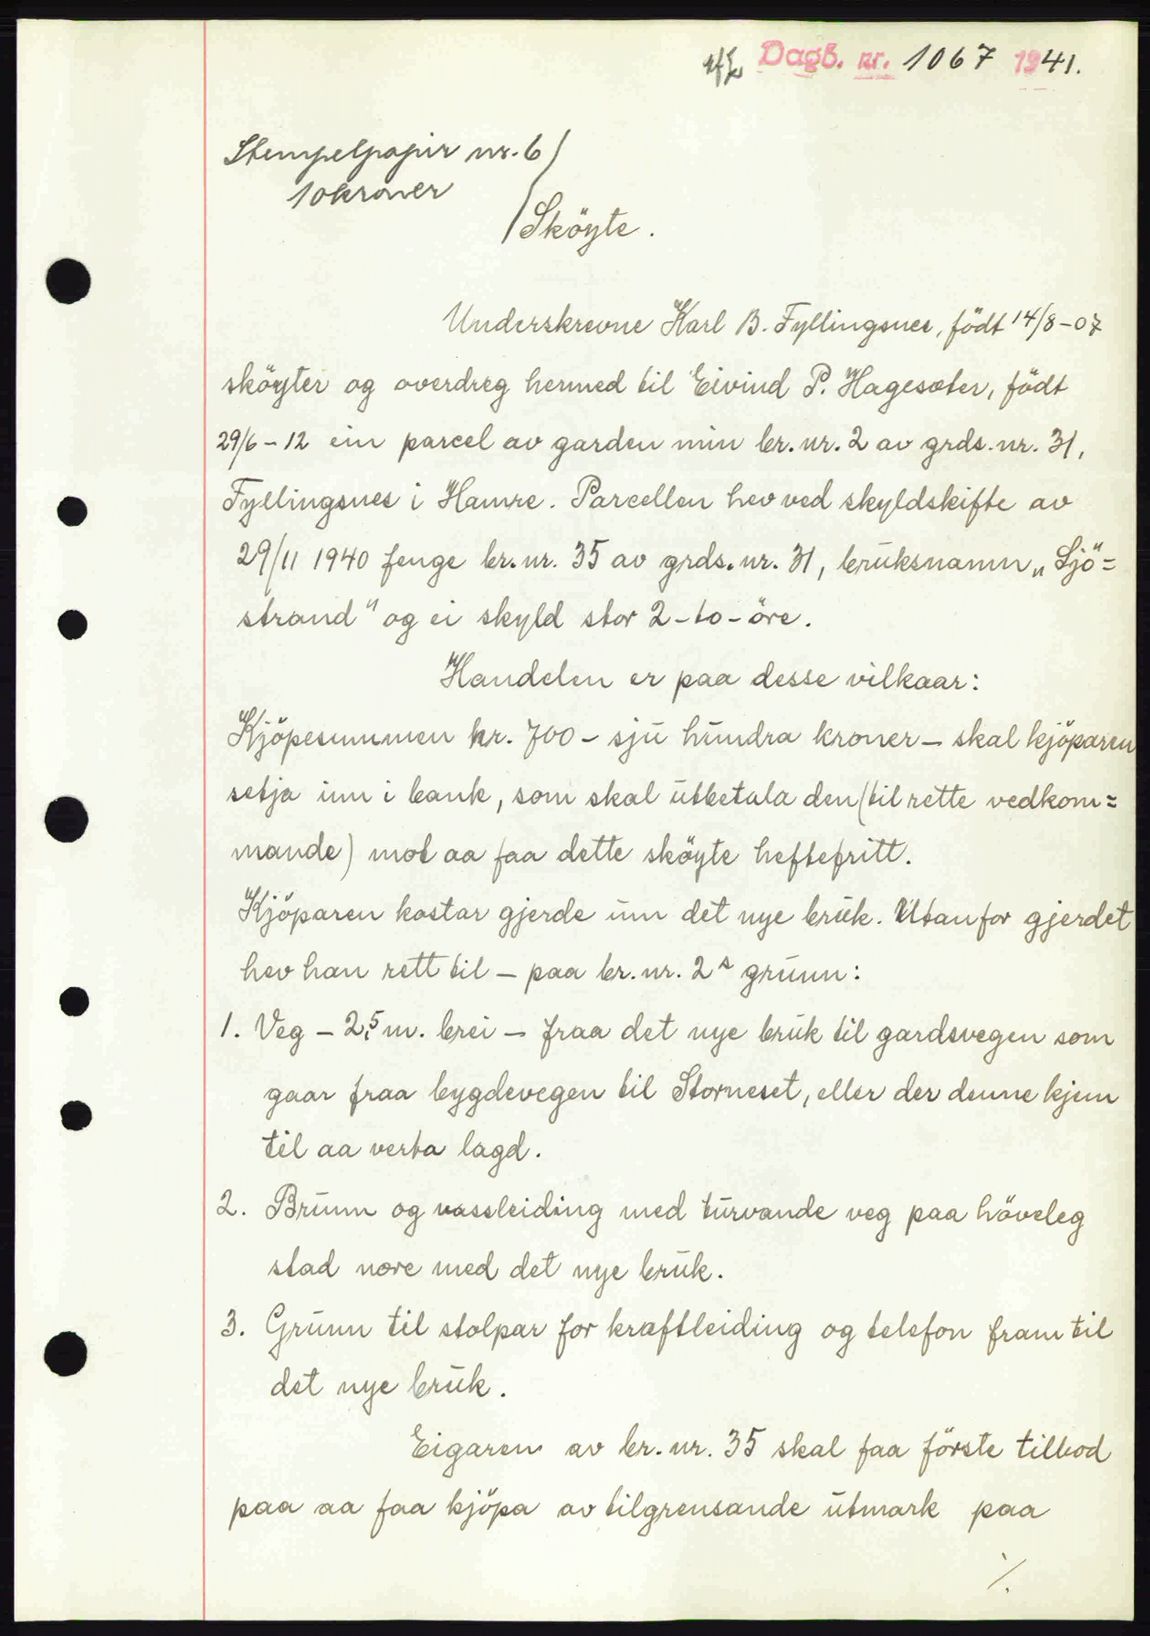 Dagb. nr. 1067 1941.
Stempelpapir nr. 6
10 kroner
Sköyte.
Underskrevne Karl B. Fyllingsnes, födt 14/8-07
sköyter og overdreg hermed til Eivind P. Hagesæter, födt
29/6-12 ein parcel av garden min br. nr. 2 av grds. nr. 31,
Fyllingsnes i Hamre. Parcellen hev ved skyldskifte av
29/11 1940 fenge br. nr. 35 av grds. nr. 31, bruksnamn „Sjö=
strand" og ei skyld stor 2-to-öre.
Handelen er paa desse vilkaar:
Kjöpesummen kr. 700 - sju hundra kroner - skal kjöparen
setja inn i bank, som skal utbetala den (til rette vedkom=
mande) mot aa faa dette sköyte heftefritt.
Kjöparen kostar gjerde um det nye bruk. Utanfor gjerdet
hev han rett til - paa br. nr. 2s grunn:
1. Veg - 2,5 m. brei - fraa det nye bruk til gardsvegen som
gaar fraa bygdevegen til Storneset, eller der denne kjem
til aa verta lagd.
2. Brunn og vassleiding med turvande veg paa höveleg
stad nære med det nye bruk.
3. Grunn til stolpar for kraftleiding og telefon fram til
det nye bruk.
Eigaren av br. nr. 35 skal faa förste tilbod
paa aa faa kjöpa av tilgrensande utmark paa
./.